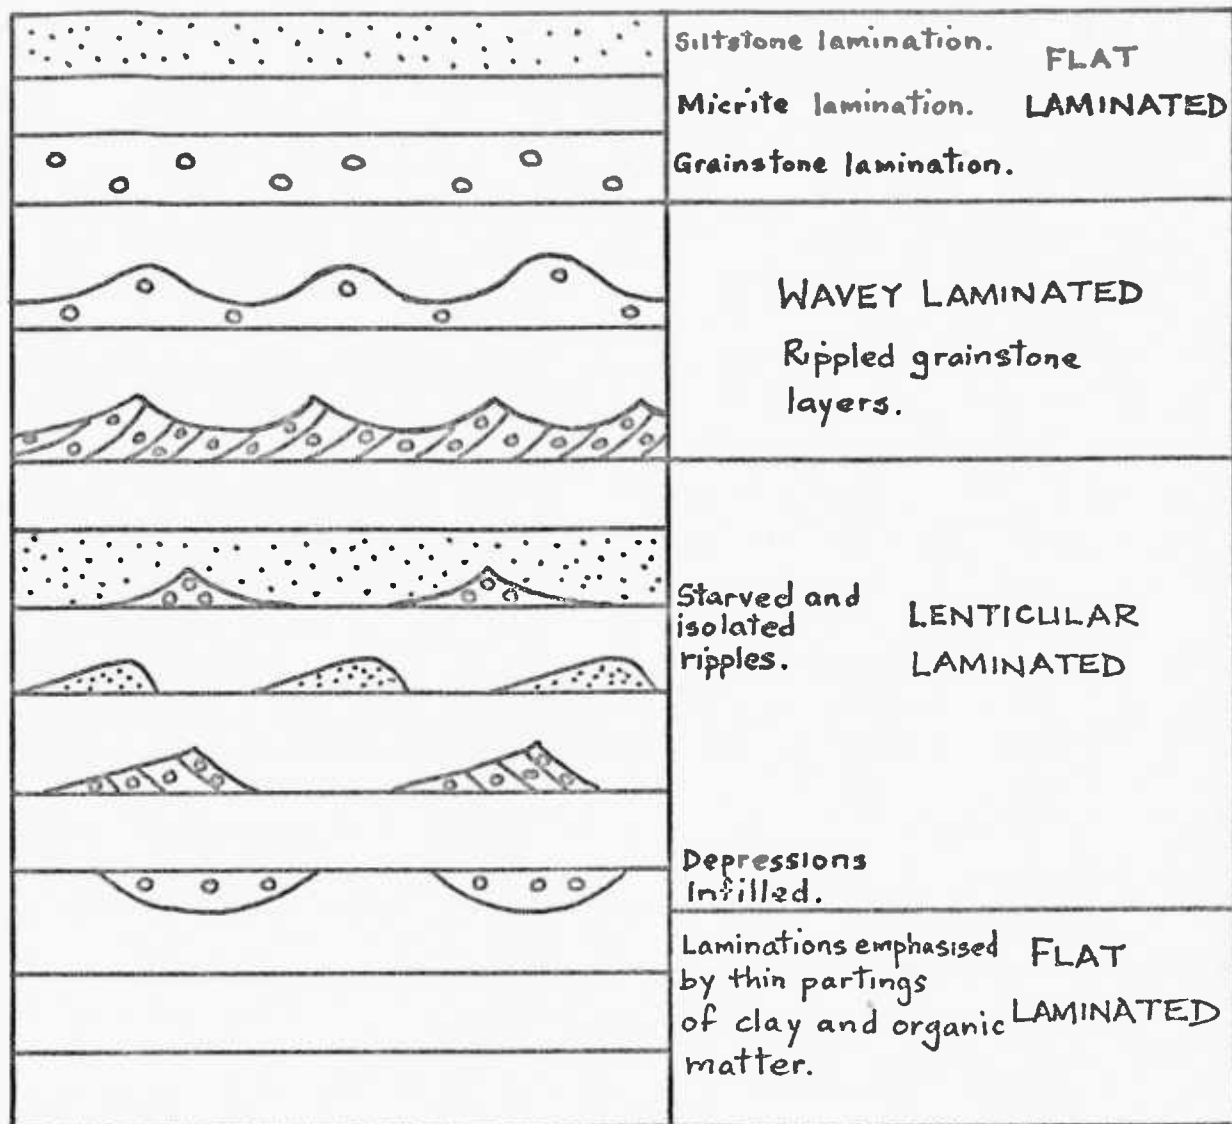 Siltstone lamination.
FLAT
Micrite lamination. LAMINATED
Grainstone lamination.
WAVEY LAMINATED
Rippled grainstone
layers.
Starved and
isolated
ripples.
LENTICULAR
LAMINATED
Depressions
Infilled.
Laminations emphasised
by thin partings
of clay and organic
matter.
FLAT
LAMINATED